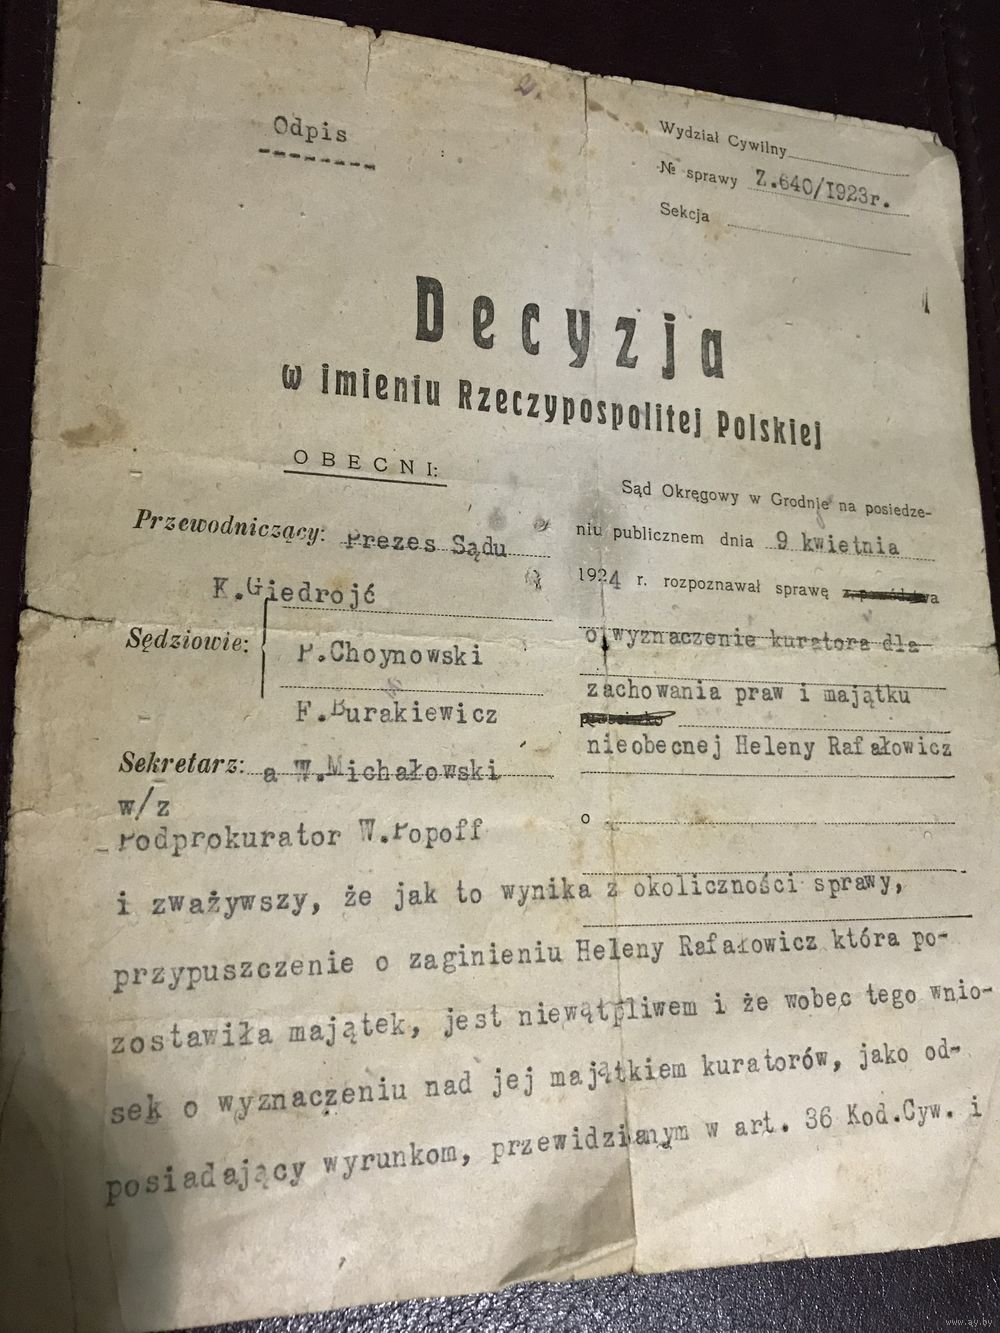 Odpis
Wydział Cywilny
№ sprawy Z.640/1923r.
Sekcja
Decyzja
w imieniu Rzeczypospolitej Polskiej
OBECNI:
Przewodniczący: Prezes Sądu
K.Giedrojć
Sędziowie:
P.Choynowski
F.Burakiewicz
Sekretarz: a W.Michałowski
w/z
Podprokurator W.Popoff
Sąd Okręgowy w Grodnie na posiedze-
niu publicznem dnia 9 kwietnia
1924 r. rozpoznawał sprawę
o wyznaczenie kuratora dla
zachowania praw i majątku
nieobecnej Heleny Rafałowicz
o
i zważywszy, że jak to wynika z okoliczności sprawy,
przypuszczenie o zaginieniu Heleny Rafałowicz która po-
zostawiła majątek, jest niewątpliwem i że wobec tego wnio-
sek o wyznaczeniu nad jej majątkiem kuratorów, jako od-
posiadający wyrunkom, przewidzianym w art. 36 Kod.Cyw. i
www.ay.by